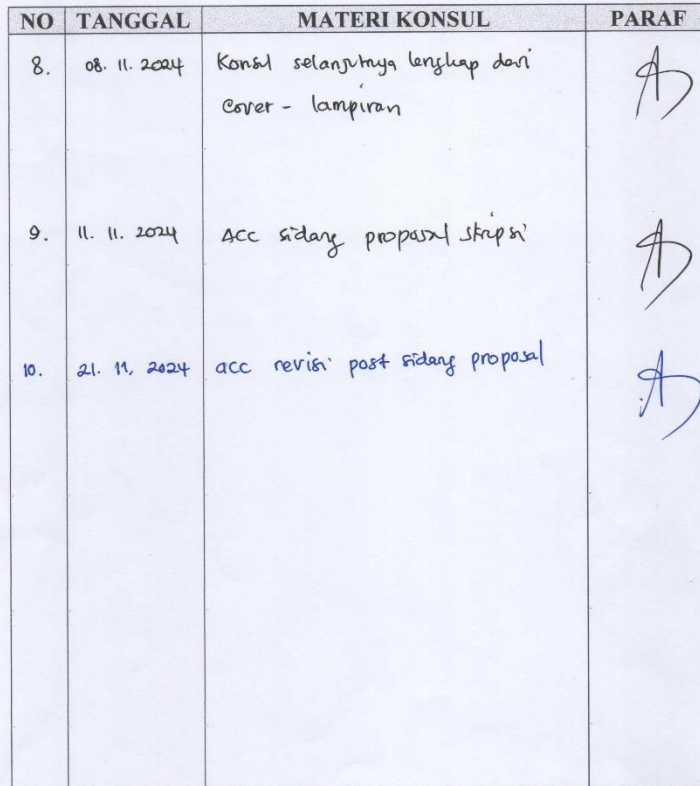 NO TANGGAL MATERI KONSUL PARAF
8. 08. 11. 2024 Konsul selanjutnya lengkap dari
Cover - lampiran
9. 11. 11. 2024 Acc sidang proposal skripsi
10. 21. 11. 2024 acc revisi post sidang proposal